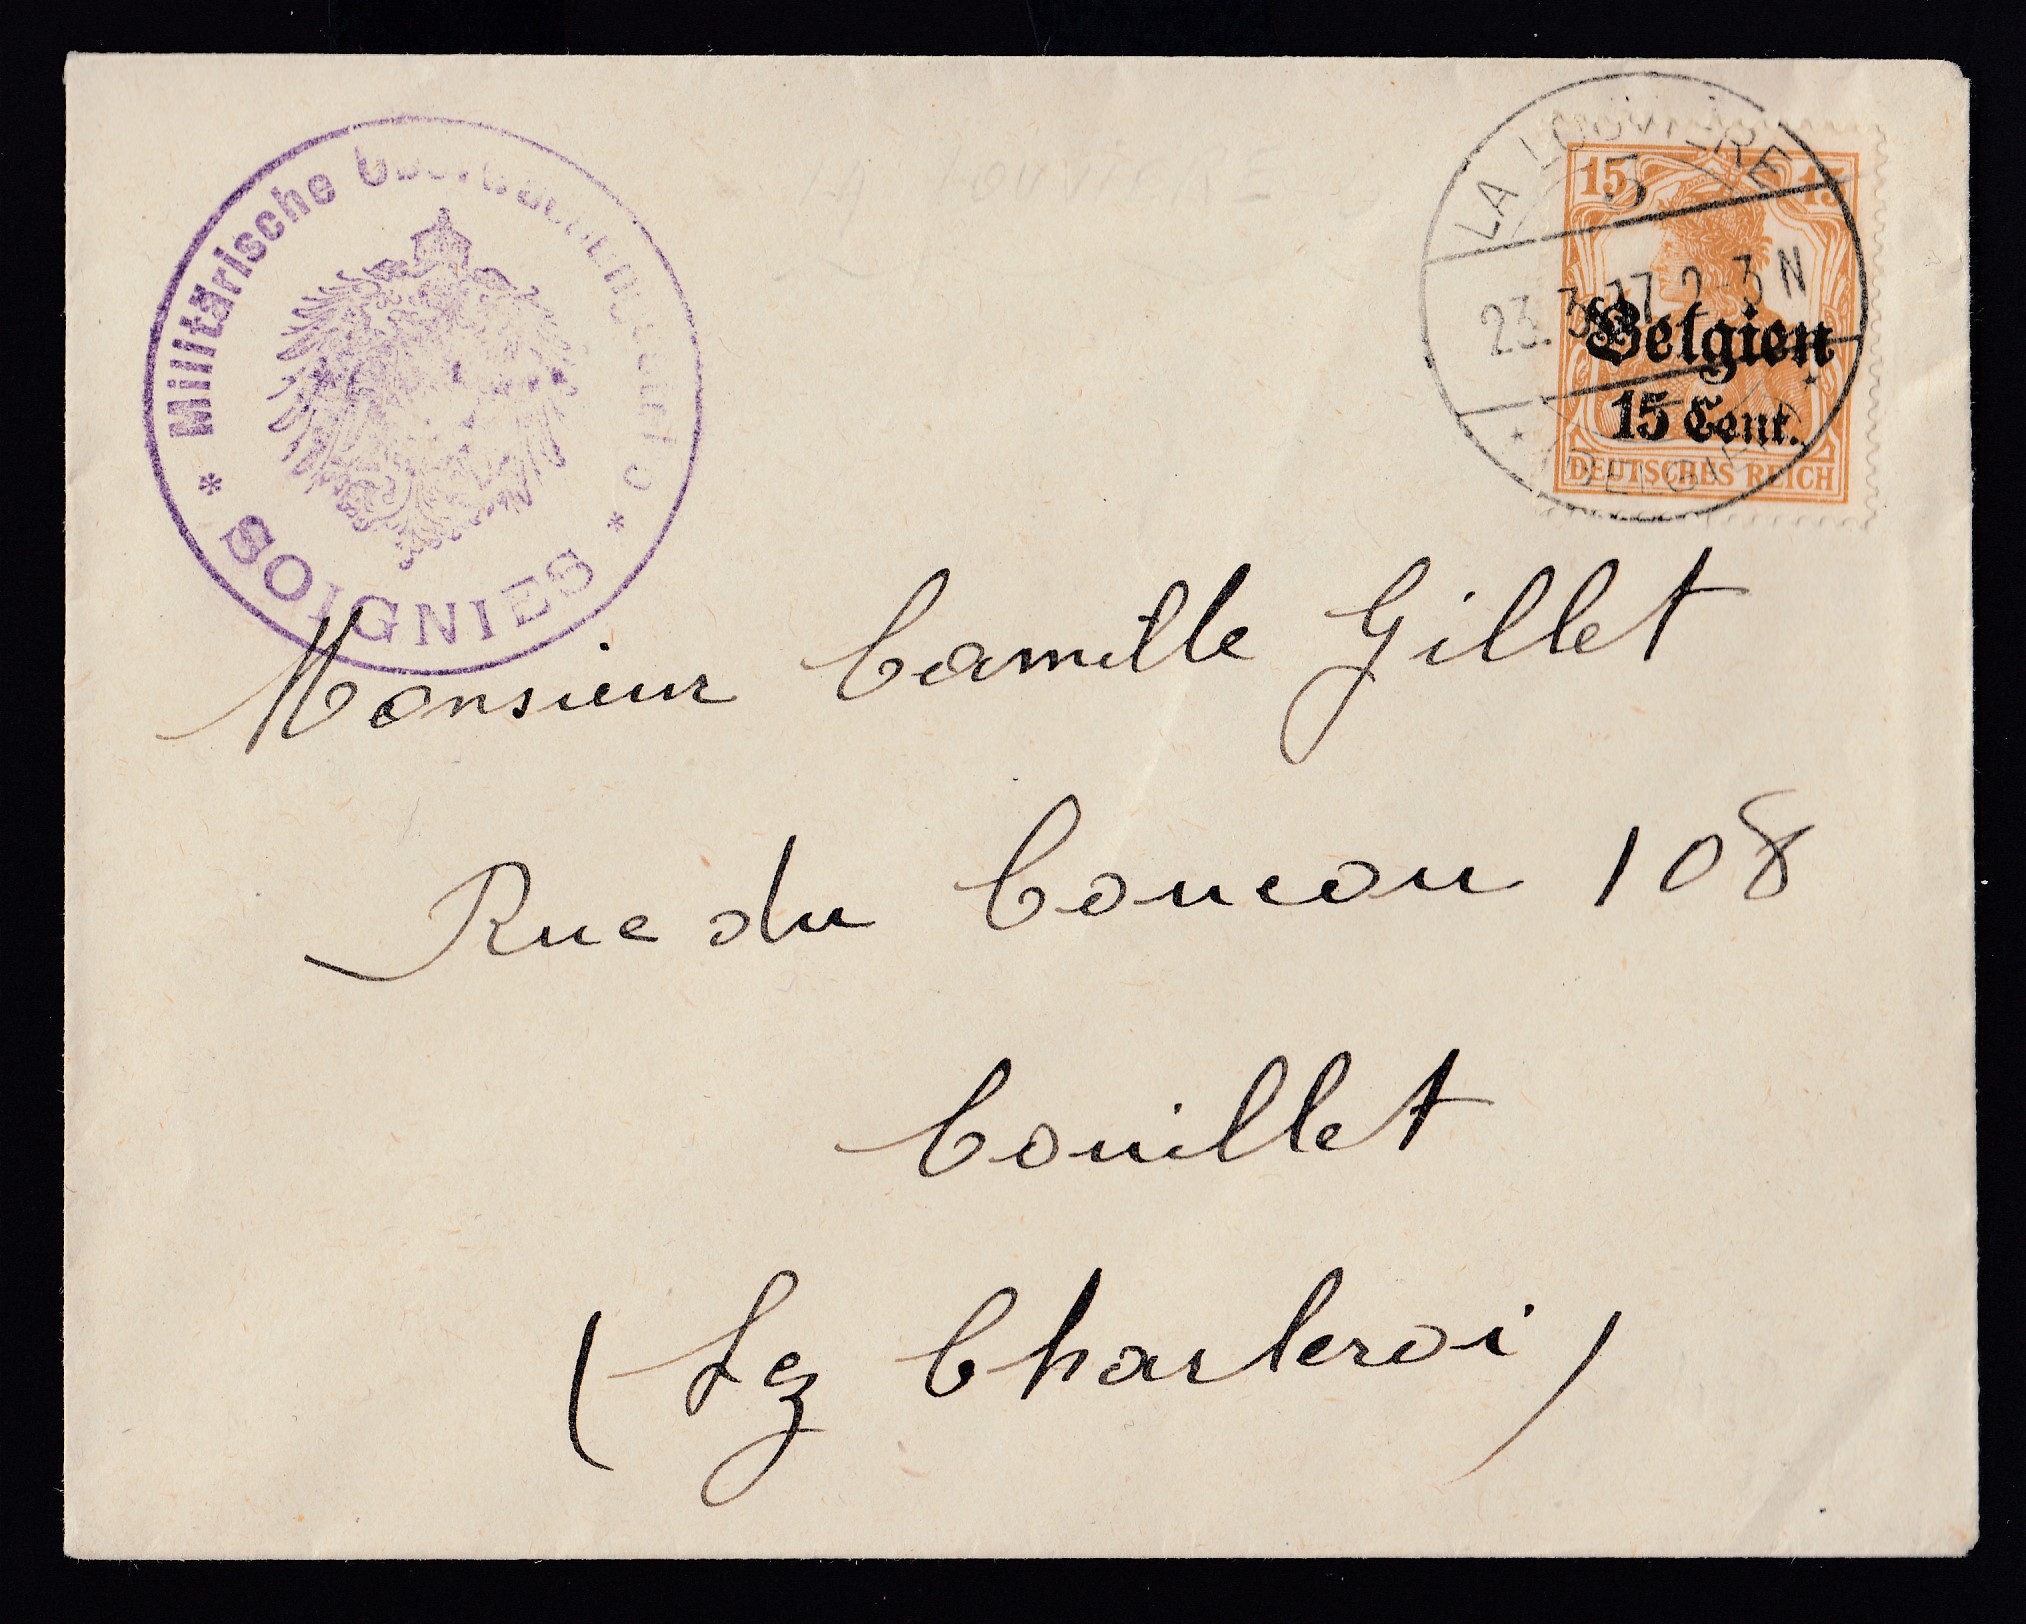 Militärische Überwachungsstelle
* SOIGNIES *
LA LOUVIERE
LA LOUVIÈRE
23. 3. 17. 2-3 N
* (BELGIEN) *
15 15
Belgien
15 Cent.
DEUTSCHES REICH
Monsieur Camille Gillet
Rue du Coucou 108
Couillet
(Lez Charleroi)